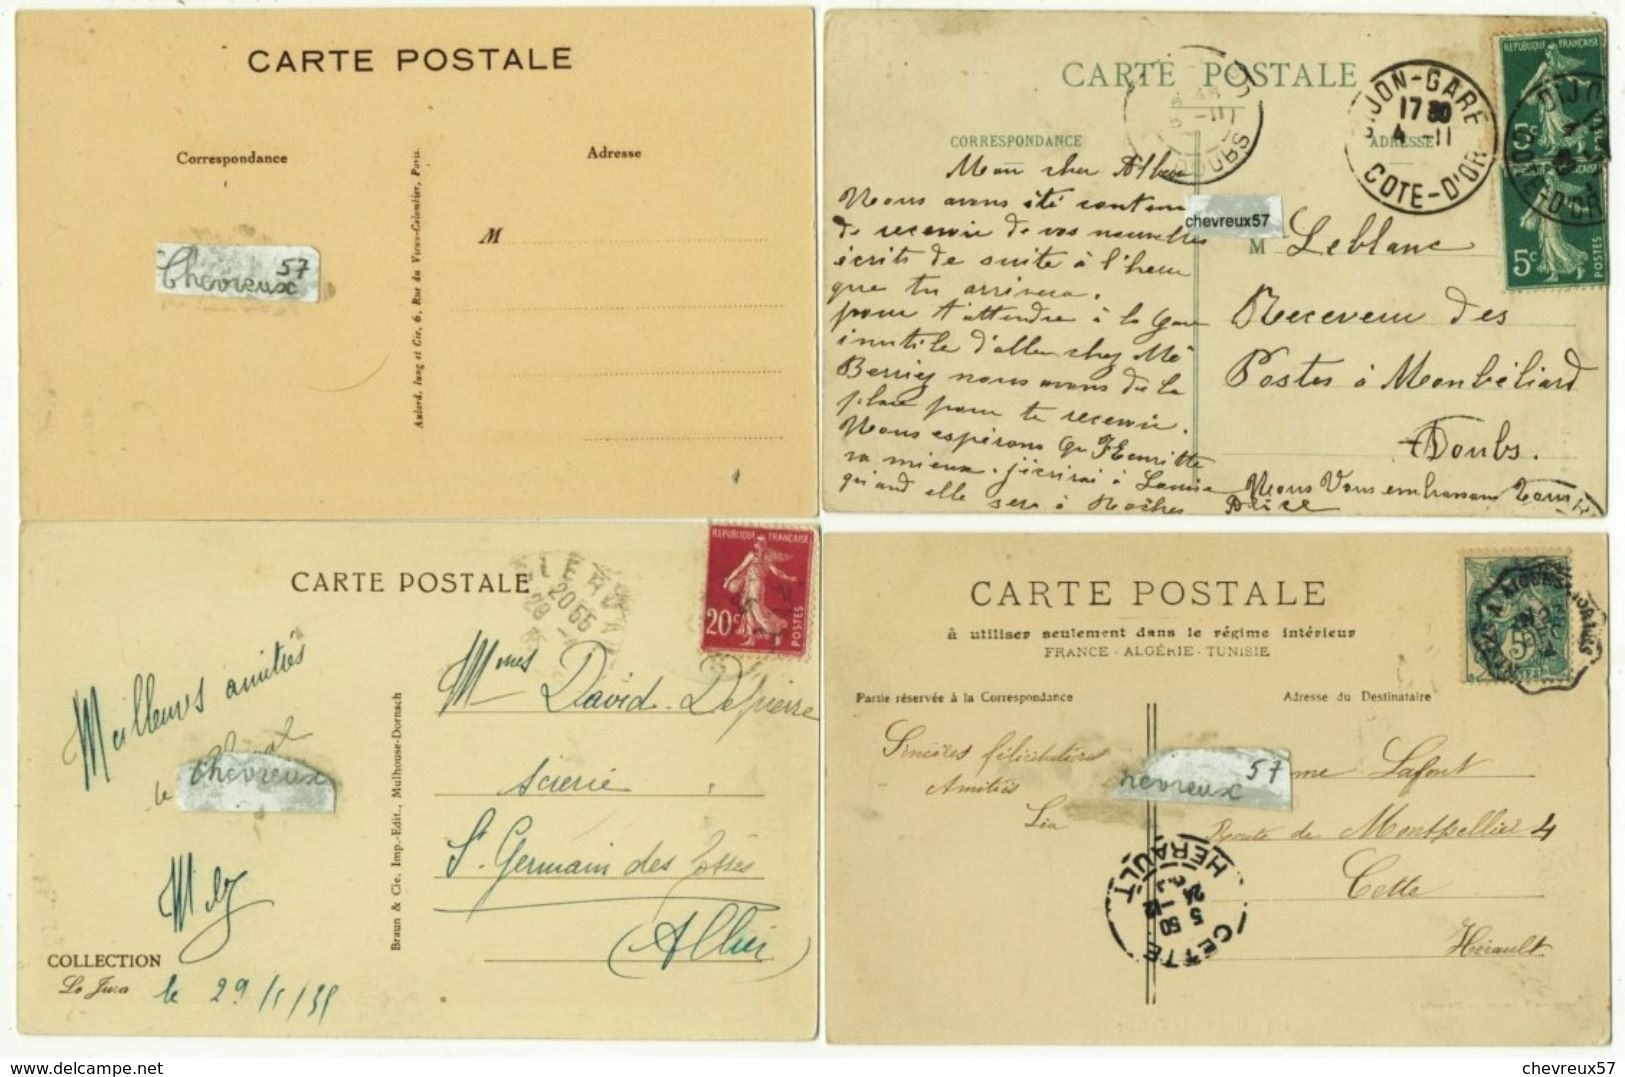 CARTE POSTALE
Correspondance
Adresse
M
Chevreux 57
Aulard, Iung et Cie, 6, Rue du Vieux-Colombier, Paris.
CARTE POSTALE
CORRESPONDANCE
ADRESSE
DIJON-GARE
17 30
4 -11
COTE-D'OR
REPUBLIQUE FRANÇAISE
5c
5c
POSTES
DOUBS
Mon cher
Nous avons été
de recevoir de vos nouvelles
écrits de suite à l'heure
que tu arrivera.
pour t'attendre à la Gare
inutile d'aller chez Mé
nous avons de la
place pour te recevoir.
Nous espérons que Henriette
va mieux. j'écrirai à
quand elle sera à
Nous Vous embrassons Tous
chevreux57
M Leblanc
Receveur des
Postes à Montbéliard
Doubs.
CARTE POSTALE
REPUBLIQUE FRANÇAISE
20c
POSTES
Meilleures amitiés
Chevreux
COLLECTION
Le Jura
le 29/1/35
Braun & Cie, Imp.-Edit., Mulhouse-Dornach
Mmes David-Depierre
scierie
St Germain des Fossés
(Allier)
CARTE POSTALE
à utiliser seulement dans le régime intérieur
FRANCE - ALGÉRIE - TUNISIE
Partie réservée à la Correspondance
Adresse du Destinataire
Sincères félicitations
Amitiés
Léa
Chevreux 57
Lafont
Route de Montpellier 4
Cette
Hérault
CETTE
HERAULT
chevreux57